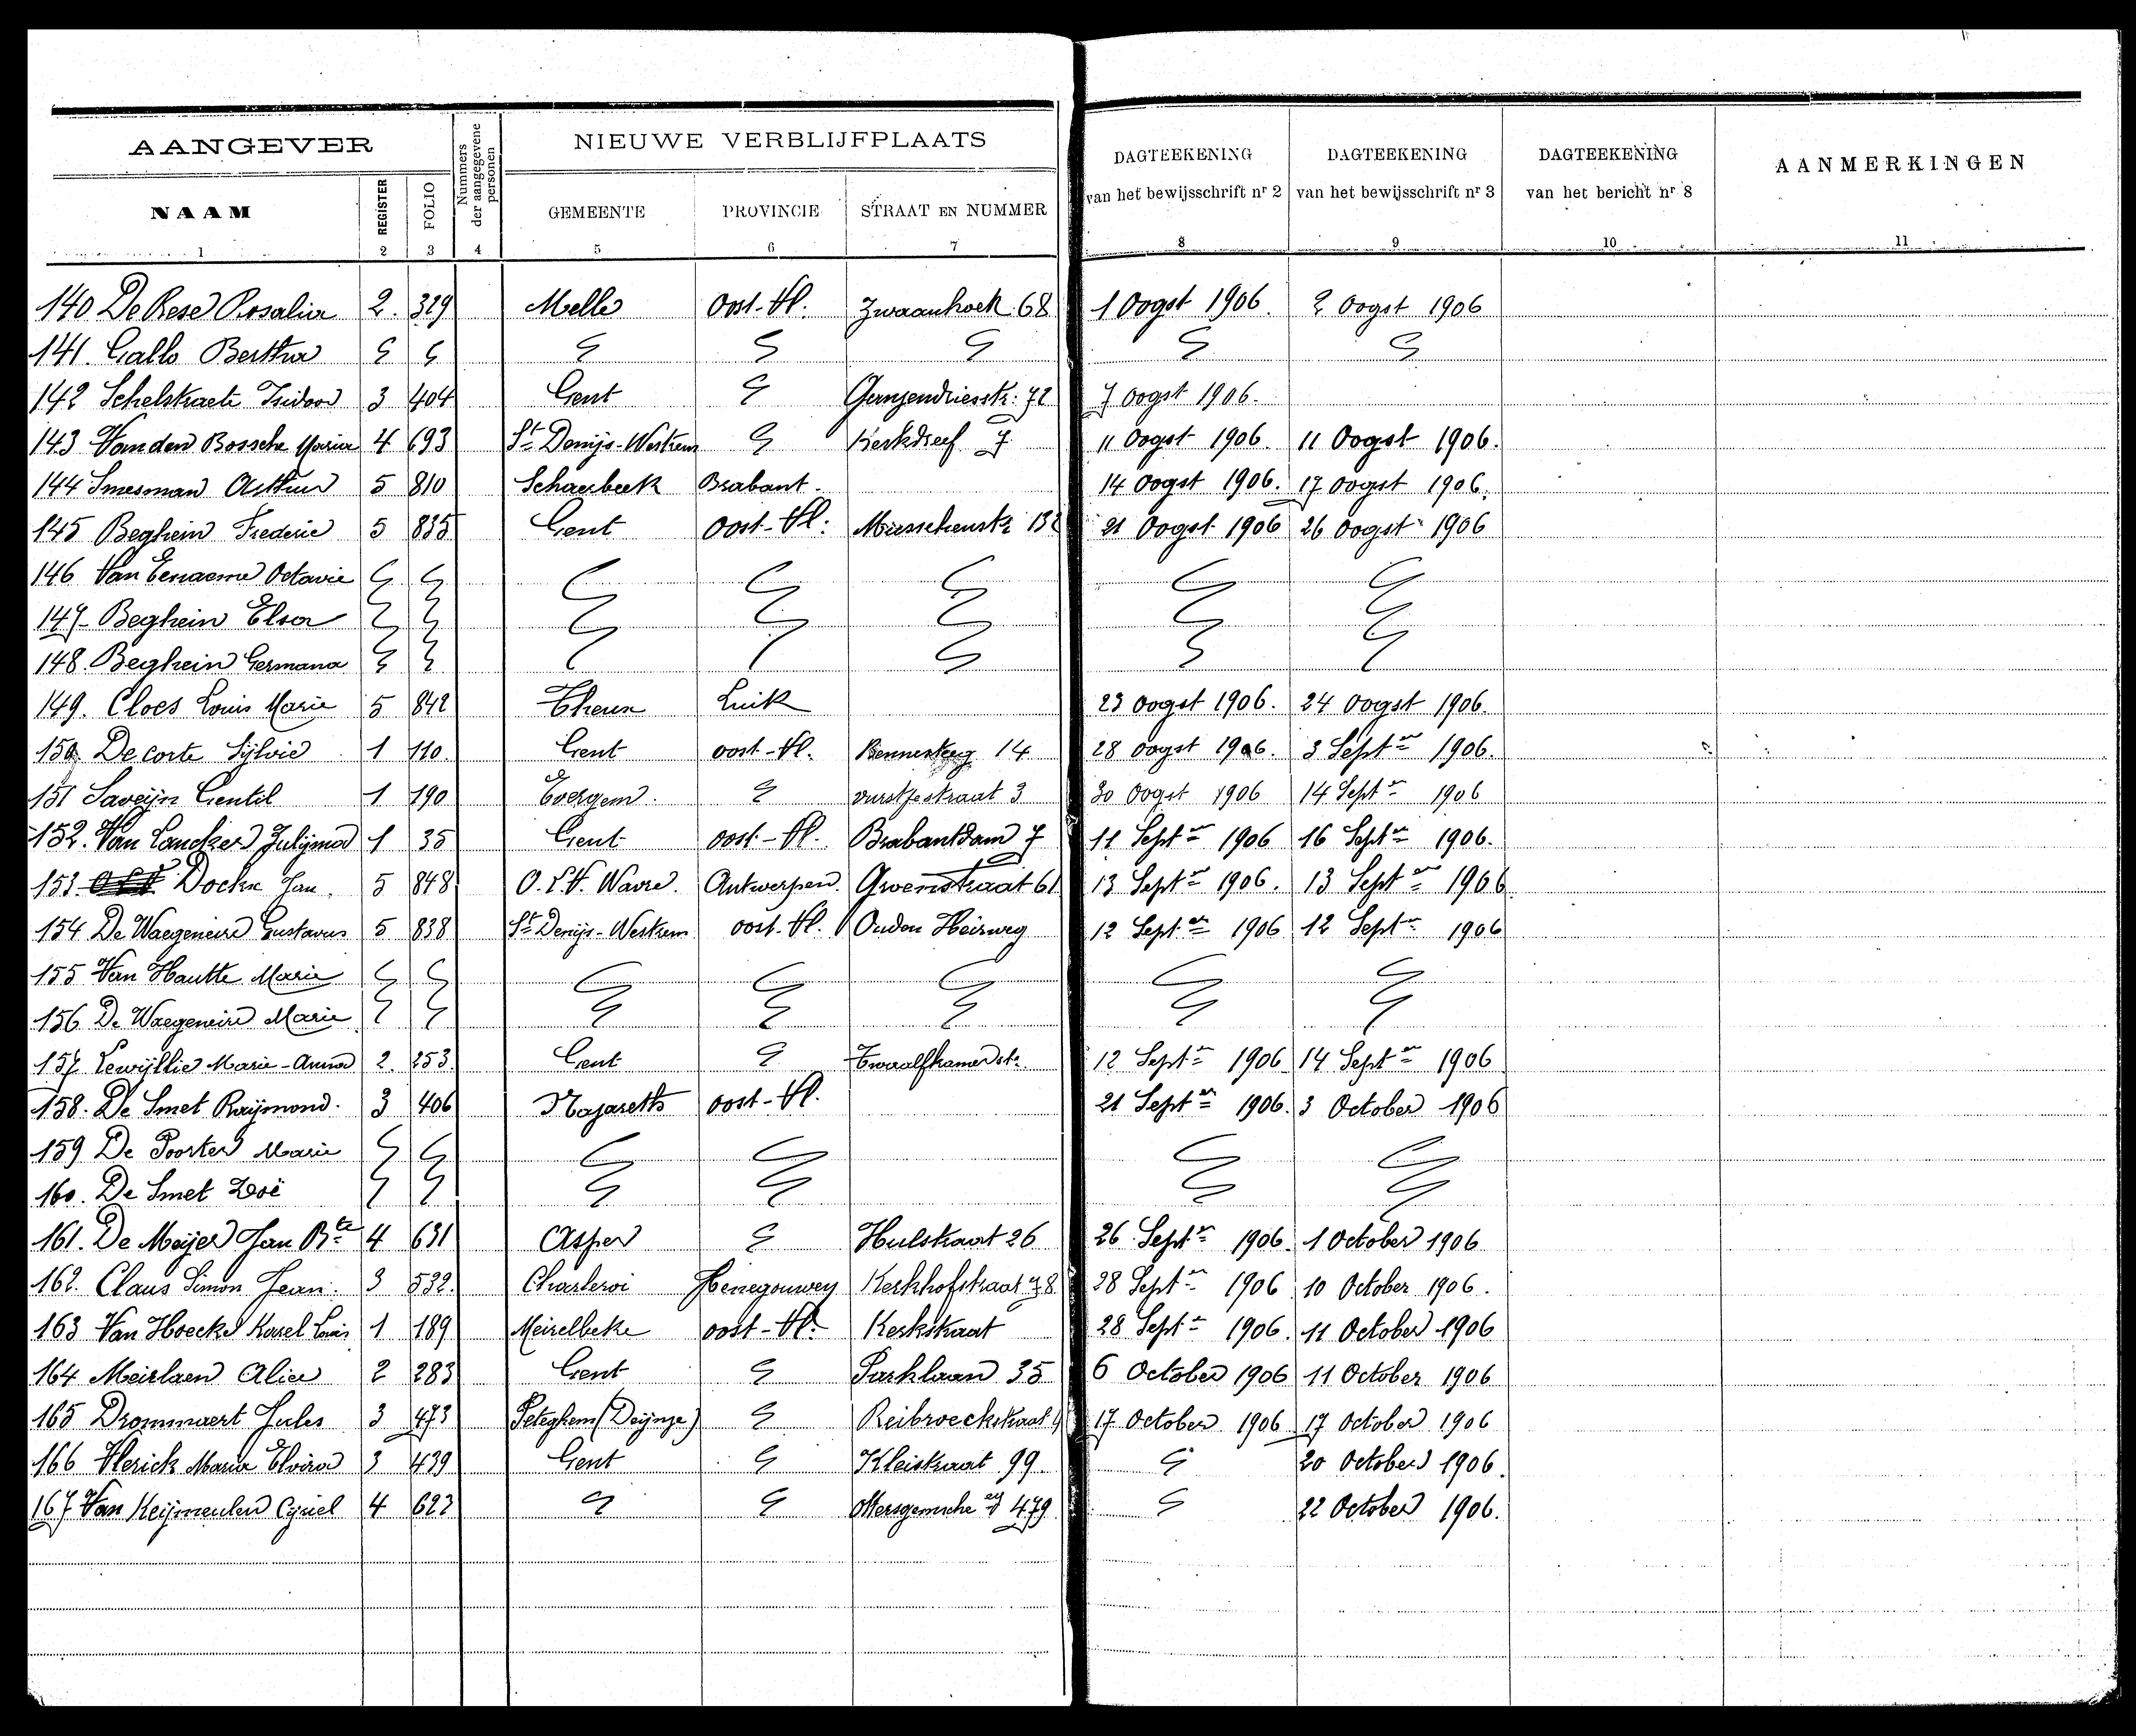 AANGEVER
NIEUWE VERBLIJFPLAATS
Nummers der aangegevene personen
DAGTEEKENING van het bewijsschrift nr 2
DAGTEEKENING van het bewijsschrift nr 3
DAGTEEKENING van het bericht nr 8
AANMERKINGEN
NAAM REGISTER FOLIO GEMEENTE PROVINCIE STRAAT EN NUMMER
1 2 3 4 5 6 7 8 9 10 11
140 De Rese Rosalia 2. 329 Melle Oost-Vl. Zwaanhoek 68 1 Oogst 1906. 2 Oogst 1906
141. Gallo Bertha
142 Schelstraete Isidoor 3 404 Gent 72 7 Oogst 1906.
143 Van den Bossche Maria 4 693 St Denijs-Westrem Kerkdreef 7 11 Oogst 1906. 11 Oogst 1906.
144 Smesman Arthur 5 810 Schaerbeek Brabant. 14 Oogst 1906. 17 Oogst 1906.
145 Beghein Frederic 5 835 Gent Oost-Vl. 21 Oogst 1906 26 Oogst 1906
146 Van Eenaeme Octavie
147 Beghein Elsa
148. Beghein Germana
149. Cloes Louis Marie 5 842 Theux Luik 23 Oogst 1906. 24 Oogst 1906.
150 De corte Sylvie 1 110. Gent oost-Vl. 14 28 Oogst 1906. 3 Septer 1906.
151 Saveijn Gentil 1 190 Evergem. vurstjestraat 3 30 Oogst 1906 14 Septer 1906
152. Van Lancker Julijma 1 35 Gent oost-Vl. Brabantdam 7 11 Septer 1906 16 Septer 1906.
153. Dockx Jan. 5 848 O.L.V. Wavre. Antwerpen. Groenstraat 61 13 Septer 1906. 13 Septer 1906
154 De Waegeneire Gustavus 5 838 St Denijs-Westrem oost-Vl. Ouden Heirweg 12 Septer 1906 12 Septer 1906
155 Van Hautte Marie
156 De Waegeneire Marie
157 Lewyllie Marie-Anna 2. 253. Gent Twaalfkamerstr. 12 Septer 1906. 14 Septer 1906
158. De Smet Raijmond. 3 406 Nazareth oost-Vl. 21 Septer 1906. 3 October 1906
159 De Poorter Marie
160. De Smet Zoë
161. De Meijer Jan Bte 4 631 Asper Hulstraat 26 26 Septer 1906. 1 October 1906
162. Claus Simon Jean. 3 532. Charleroi Henegouwen Kerkhofstraat 78 28 Septer 1906 10 October 1906.
163 Van Hoecke Karel Louis 1 189 Meirelbeke oost-Vl. Kerkstraat 28 Septer 1906. 11 October 1906
164 Meirlaen Alice 2 283 Gent Parklaan 35 6 October 1906 11 October 1906
165 Drommaert Jules 3 473 Peteghem (Deijnze) Reibroeckstraat 17 October 1906 17 October 1906
166 Vlerick Maria Elvira 3 439 Gent Kleistraat 99 20 October 1906.
167 Van Keijmeulen Cyriel 4 623 479 22 October 1906.